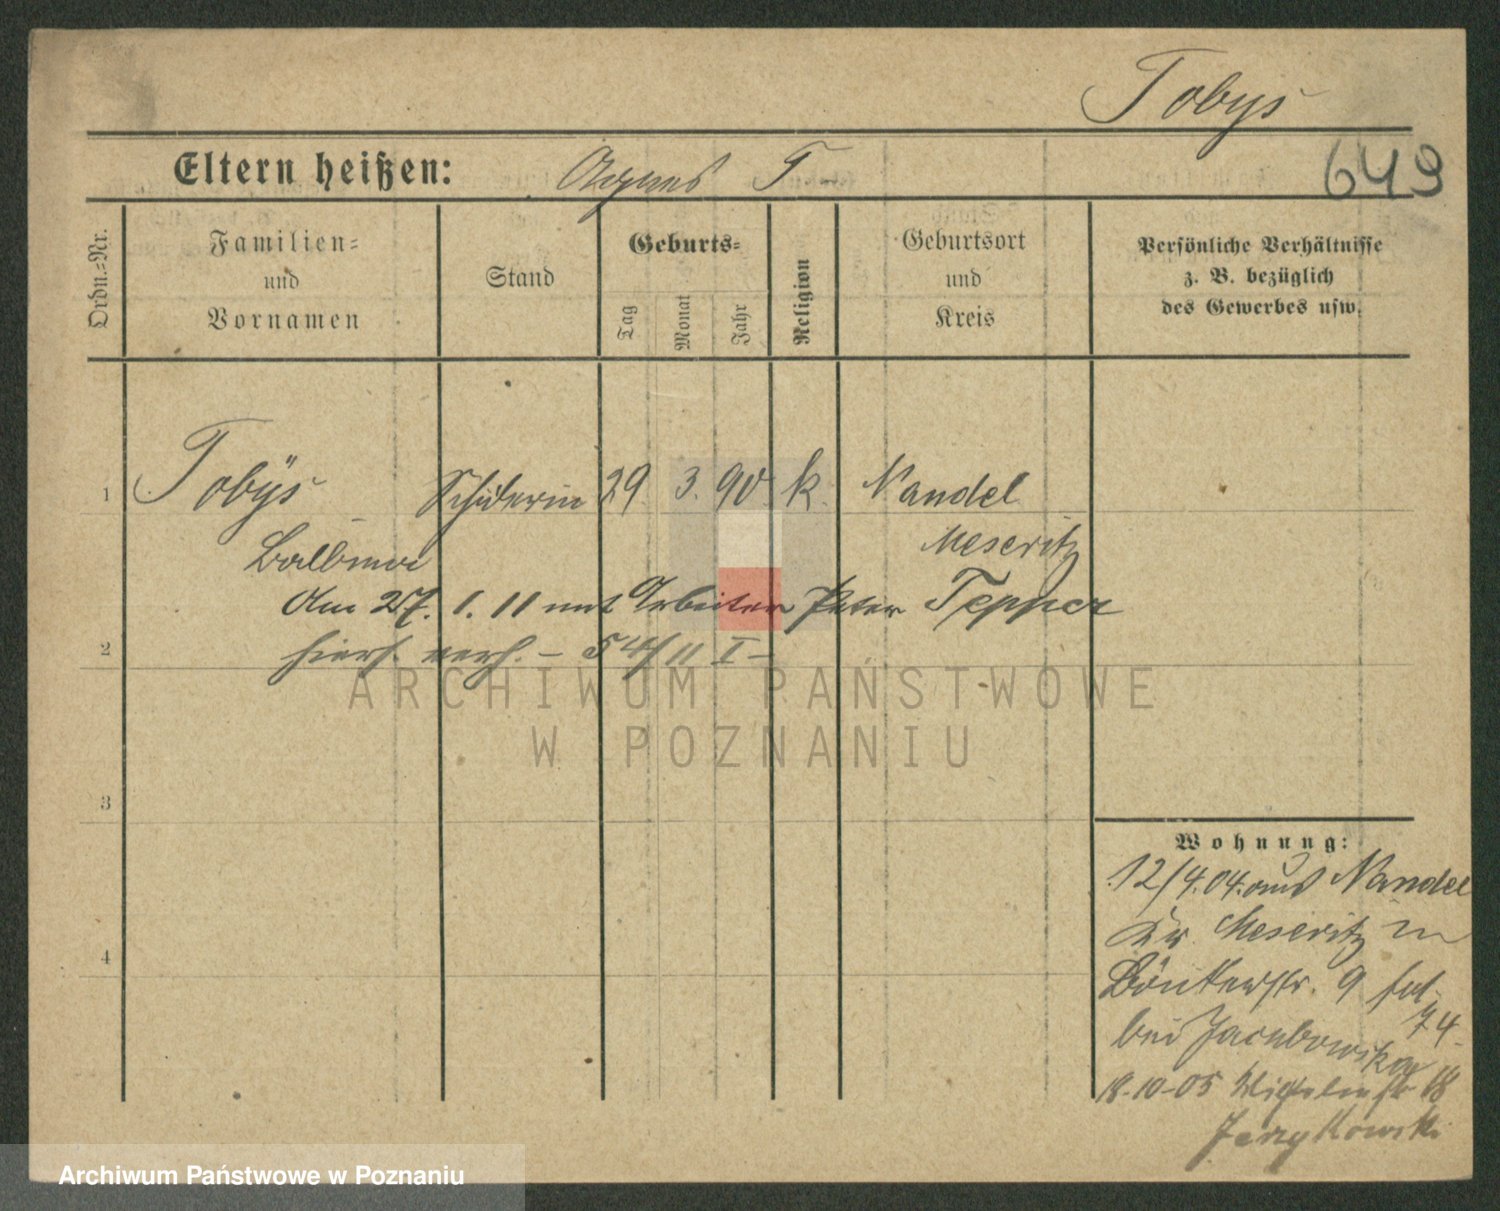 Tobys
649
Eltern heißen: Agnes T
Ordn.-Nr.
Familien-
und
Vornamen
Stand
Geburts-
Tag
Monat
Jahr
Religion
Geburtsort
und
Kreis
Persönliche Verhältnisse
z. B. bezüglich
des Gewerbes usw.
1 Tobÿs Schülerin 29 3. 90 k. Nandel
Balbina Meseritz
Am 27. 1. 11 mit Arbeiter Peter Tepper
2 hiers. verh. – 54/11 I –
ARCHIWUM PAŃSTWOWE
W POZNANIU
3
4
Wohnung:
12/4.04. aus Nandel
Kr. Meseritz in
9
74
bei
18-10-05 18
Jerzykowski
Archiwum Państwowe w Poznaniu